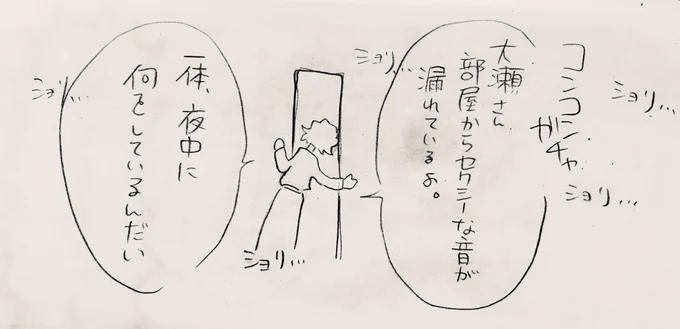 ショリ…
ショリ…
コンコン
ガチャ
大瀬さん
部屋からセクシーな音が
漏れているよ。
ショリ…
ショリ…
一体、夜中に
何をしているんだい
ショリ…